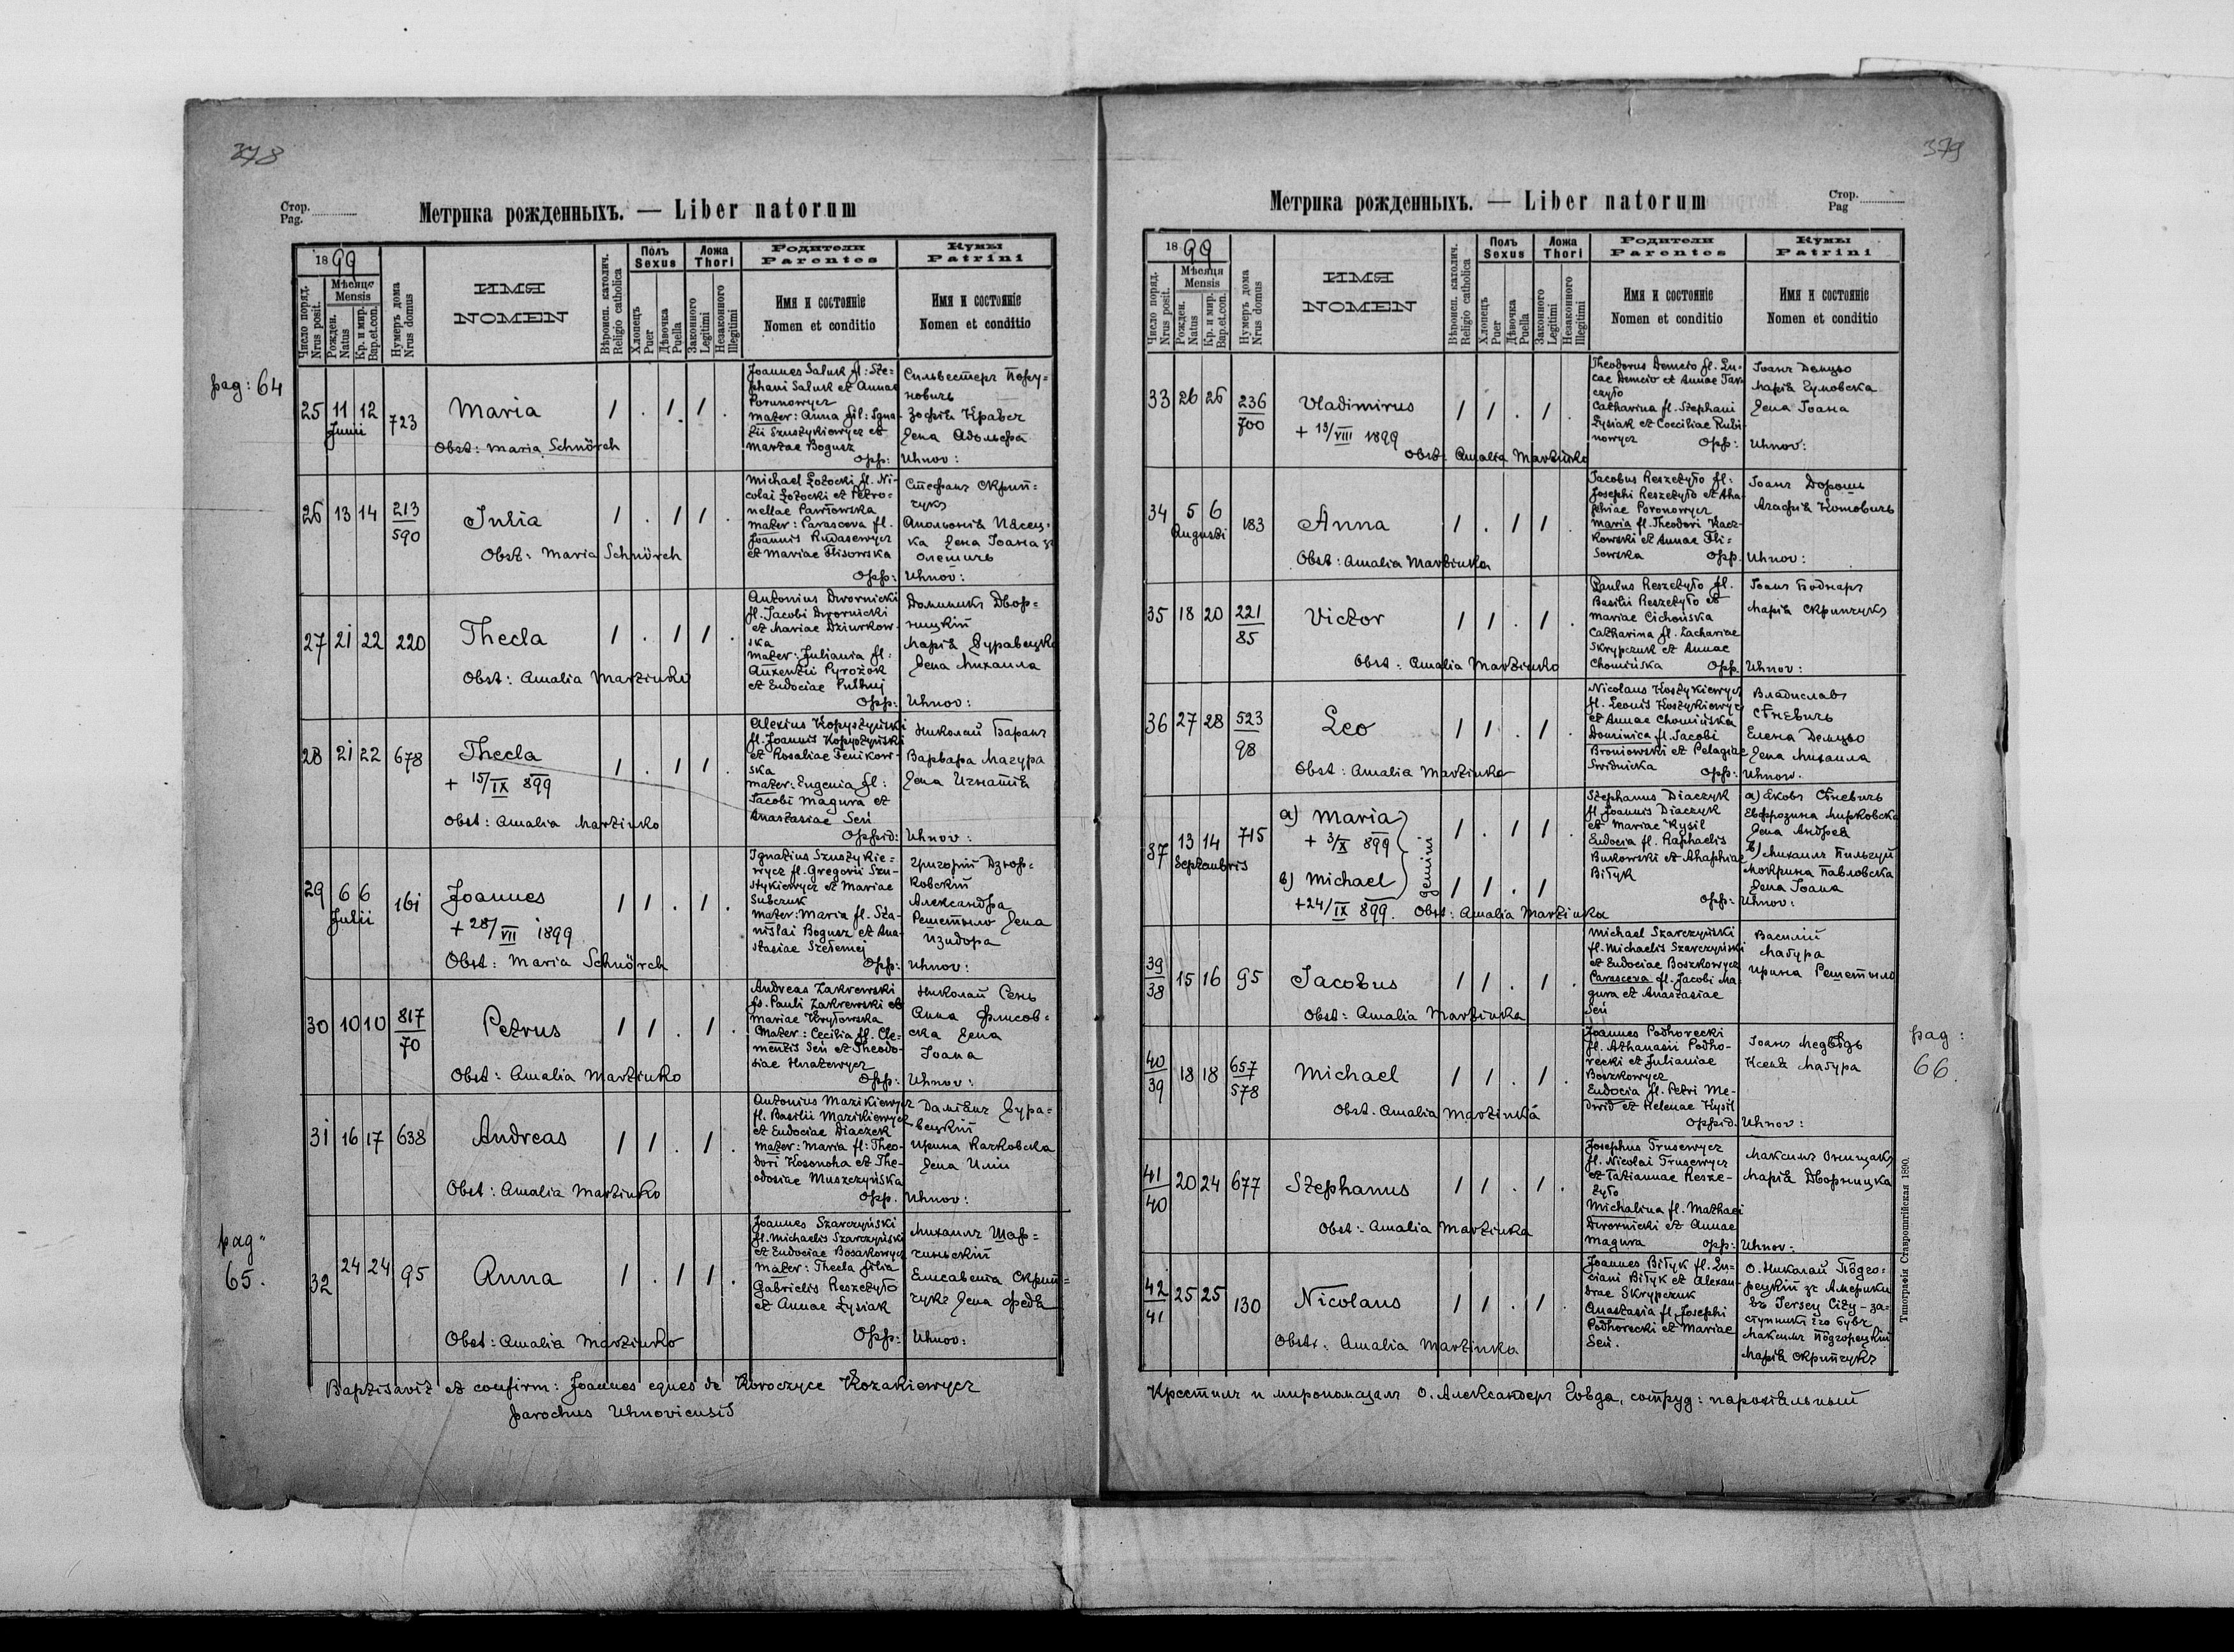 378
Стор.
Pag.
Метрика рожденныхъ. — Liber natorum
1899
Число поряд.
Nrus posit.
Мѣсяцѣ
Mensis
Рожден.
Natus
Кр. и мир.
Bap.et.con.
Нумеръ дома
Nrus domus
ИМЯ
NOMEN
Вѣроисп. католич.
Religio catholica
Полъ
Sexus
Хлопецъ
Puer
Дѣвочка
Puella
Ложа
Thori
Законного
Legitimi
Незаконного
Illegitimi
Родители
Parentes
Имя и состояніе
Nomen et conditio
Кумы
Patrini
Имя и состояніе
Nomen et conditio
pag: 64
25 11 12 723 Maria 1 . 1 1 .
Junii
Obst: Maria Schnörch
Joannes Saluk fl: Ste=
phani Saluk et Annae
Porunowycz
mater: Anna fil: Igna-
tii Szustykiewycz et
Martae Bogusz
Opp: Uhnov:
Сильвестеръ Пору=
новичь
Зофія Кравец
жена Адольфа
26 13 14 213
590
Julia 1 . 1 1 .
Obst: Maria Schnörch
Michael Łotocki fl. Ni-
colai Łotocki et Petro=
nellae Pawłowska
mater: Parasceva fl.
Joannis Rudasewycz
et Mariae Hlisowska
Opp: Uhnov:
Стефанъ Скрип=
чукъ
27 21 22 220 Thecla 1 . 1 1 .
Obst: Amalia Martinko
Antonius Dwornicki
fl. Jacobi Dwornicki
et Mariae Dziurkow-
ska
mater: Juliania fl:
Auxentii Pyrożok
et Eudociae
Opp: Uhnov:
Доминикъ Двор=
ницкій
Марія Журавецка
жена Михаила
28 21 22 678 Thecla 1 . 1 1 .
+ 15/IX 899
Obst: Amalia Martinko
Alexius Kopystyński
fl. Joannis Kopystyński
et Rosaliae Fenikow-
ska
mater: Eugenia fl:
Jacobi Magura et
Anastasiae Seń
Oppid: Uhnov:
Николай Баранъ
Варвара Магура
жена Игнатія
29 6 6 161 Joannes 1 1 . 1 .
Julii
+ 28/VII 1899
Obst: Maria Schnörch
Ignatius Szustykie=
wycz fl. Gregorii Szu-
stykiewycz et Mariae
Subczuk
mater: Maria fl. Sta-
nislai Bogusz et Ana-
stasiae Szełemej
Opp: Uhnov:
Григорій Дзюр=
ковскій
Александра
Решетыло жена
Изидора
30 10 10 817
70
Petrus 1 1 . 1 .
Obst: Amalia Martinko
Andreas Zakrewski
fs. Pauli Zakrewski et
Mariae Kryłowska
Mater: Cecilia fl. Cle-
mentis Seń et Theodo-
siae Hnatewycz
Opp: Uhnov:
Николай Сень
Анна Флисов=
ска жена
Іоана
31 16 17 638 Andreas 1 1 . 1 .
Obst: Amalia Martinko
Antonius Mazikiewycz
fl. Basilii Mazikiewycz
et Eudociae Diaczek
mater: Maria fl: Theo-
dori Kosonoha et The-
odosiae Muszczyńska
Opp. Uhnov:
Даміянъ Жура=
вецкій
Ирина Качковска
жена Иліи
pag"
65.
32 24 24 95 Anna 1 . 1 1 .
Obst: Amalia Martinko
Joannes Szarczyński
fl. Michaelis Szarczyński
et Eudociae Boszkowycz
mater: Thecla filia
Gabrielis Reszetyło
et Annae Łysiak
Opp: Uhnov:
Михаилъ Шар=
чиньскій
Елисавета Скрип=
чукъ жена Федя
Baptisavit et confirm: Joannes eques de Koroczyce Kozakiewycz
parochus Uhnoviensis
379
Метрика рожденныхъ. — Liber natorum
Стор.
Pag
1899
Число поряд.
Nrus posit.
Мѣсяця
Mensis
Рожден.
Natus
Кр. и мир.
Bap.et.con.
Нумеръ дома
Nrus domus
ИМЯ
NOMEN
Вѣроисп. католич.
Religio catholica
Полъ
Sexus
Хлопецъ
Puer
Дѣвочка
Puella
Ложа
Thori
Законного
Legitimi
Незаконного
Illegitimi
Родители
Parentes
Имя и состояніе
Nomen et conditio
Кумы
Patrini
Имя и состояніе
Nomen et conditio
33 26 26 236
700
Vladimirus 1 1 . 1 .
+ 13/VIII 1899
Obst: Amalia Martinko
Theodorus Demcio fl. Lu-
cae Demcio et Annae
Catharina fl. Stephani
Łysiak et Coeciliae Rubi-
nowycz Opp: Uhnov:
Іоанъ Демцьо
Марія Гумовска
жена Іоана
34 5 6 183 Anna 1 . 1 1 .
Augusti
Obst: Amalia Martinka
Jacobus Reszetyło fl:
Josephi Reszetyło et Aha-
phiae Poronowycz
Maria fl. Theodori Kacz-
kowski et Annae Hli-
sowska Opp. Uhnov:
Іоанъ Дорошь
Агафія Котовичь
35 18 20 221
85
Victor 1 1 . 1 .
Obst: Amalia Martinko
Paulus Reszetyło fl.
Basilii Reszetyło et
Mariae Cichońska
Catharina fl. Zachariae
Skrypczuk et Annae
Chomińska Opp. Uhnov:
Іоанъ Боднаръ
Марія Скрипчукъ
36 27 28 523
98
Leo 1 1 . 1 .
Obst: Amalia Martinka
Nicolaus Kostykiewycz
fl. Leonis Kostykiewycz
et Annae Chomińska
Dominica fl. Jacobi
Broniowski et Pelagiae
Swidnicka Opp: Uhnow.
Владиславъ
Сѣневичь
Елена Демцьо
жена Михаила
37 13 14 715
Septembris
a) Maria 1 . 1 1 .
+ 3/X 899
b) Michael 1 1 . 1
+24/IX 899.
gemini
Obst: Amalia Martinka
Stephanus Diaczyk
fl Joannis Diaczyk
et Mariae Kysil
Eudocia fl. Raphaelis
Bukowski et Ahaphiae
Biłyk
Opp: Uhnov:
a) Яковъ Сѣневичь
Евфрозина Мирковска
жена Андрея
b) Михаилъ
Мокрина Павловска
жена Іоана
39
38
15 16 95 Jacobus 1 1 . 1 .
Obst: Amalia Martinka
Michael Szarczyński
fl. Michaelis Szarczyński
et Eudociae Boszkowycz
Parasceva fl. Jacobi Ma-
gura et Anastasiae
Seń
Василій
Магура
Ирина Решетыло
pag:
66.
40
39
18 18 657
578
Michael 1 1 . 1 .
Obst. Amalia Martinka
Joannes Podhorecki
fl. Athanasii Podho-
recki et Julianiae
Boszkowycz
Eudocia fl. Petri Me-
dwid et Helenae Kysil
Oppid. Uhnov:
Іоанъ Медвѣдь
Ксеня Магура
41
40
20 24 677 Stephanus 1 1 . 1 .
Obst: Amalia Martinka
Josephus Trusewycz
fl. Nicolai Trusewycz
et Tatiannae Resze-
tyło
Michalina fl. Mathaei
Dwornicki et Annae
Magura Opp: Uhnov:
Максимъ Онищакъ
Марія Дворницка
42
41
25 25 130 Nicolaus 1 1 . 1 .
Obst: Amalia Martinka
Joannes Biłyk fl. Lu-
ciani Biłyk et Alexan-
drae Skrypczuk
Anastasia fl. Josephi
Podhorecki et Mariae
Seń.
О. Николай Пôдго=
рецкій зъ Америки
въ Jersey City - за-
ступникъ его бувъ
Максимъ Пôдгорецкій
Марія Скрипчукъ
Крестилъ и миропомазалъ О. Александеръ Говда, сотруд: парохіяльный
Типографія Ставропигійская 1890.